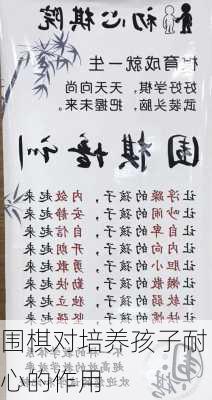 初心棋院
棋育成就一生
好好学棋 天天向尚
武装头脑 把握未来
围棋培训
让浮躁的孩子，内敛起来
让吵闹的孩子，安静起来
让自卑的孩子，自信起来
让内向的孩子，开朗起来
让胆小的孩子，勇敢起来
让的孩子，起来
让的孩子，起来
让的孩子，独立起来
围棋对培养孩子耐
心的作用